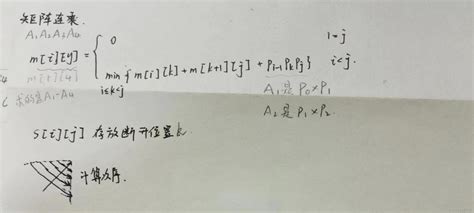 矩阵连乘.
A₁A₂A₃A₄
m[i][j] = { 0 i=j
min { m[i][k] + m[k+1][j] + Pᵢ₋₁PₖPⱼ } i<j.
i≤k<j
m[1][4]
求的是A₁-A₄
A₁是P₀×P₁
A₂是P₁×P₂
S[i][j] 存放断开位置k
计算次序.